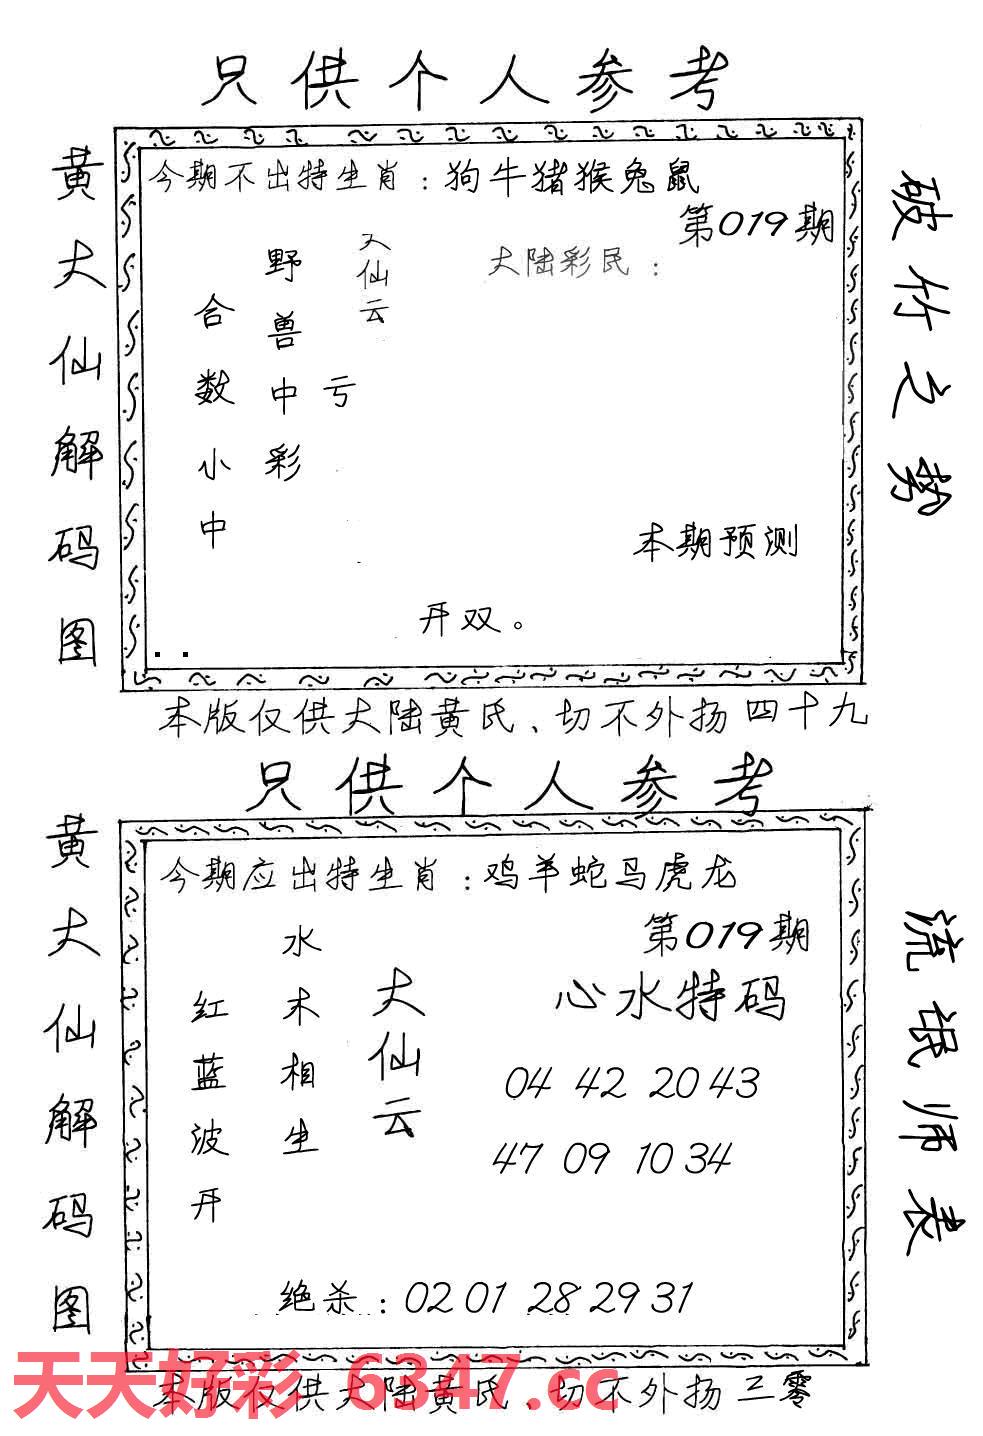 只供个人参考
黄大仙解码图
今期不出特生肖：狗牛猪猴兔鼠
第019期
大陆彩民：
大仙云
亏
野兽中彩
合数小中
本期预测
开双。
破竹之势
本版仅供大陆黄氏、切不外扬四十九
只供个人参考
黄大仙解码图
今期应出特生肖：鸡羊蛇马虎龙
第019期
心水特码
04 42 20 43
47 09 10 34
大仙云
水木相生
红蓝波开
绝杀：02 01 28 29 31
流氓师表
天天好彩 6347.cc
本版仅供大陆黄氏、切不外扬三零